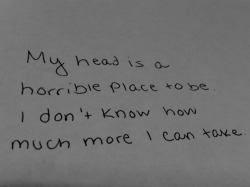 My head is a
horrible place to be.
I don't know how
much more I can take.